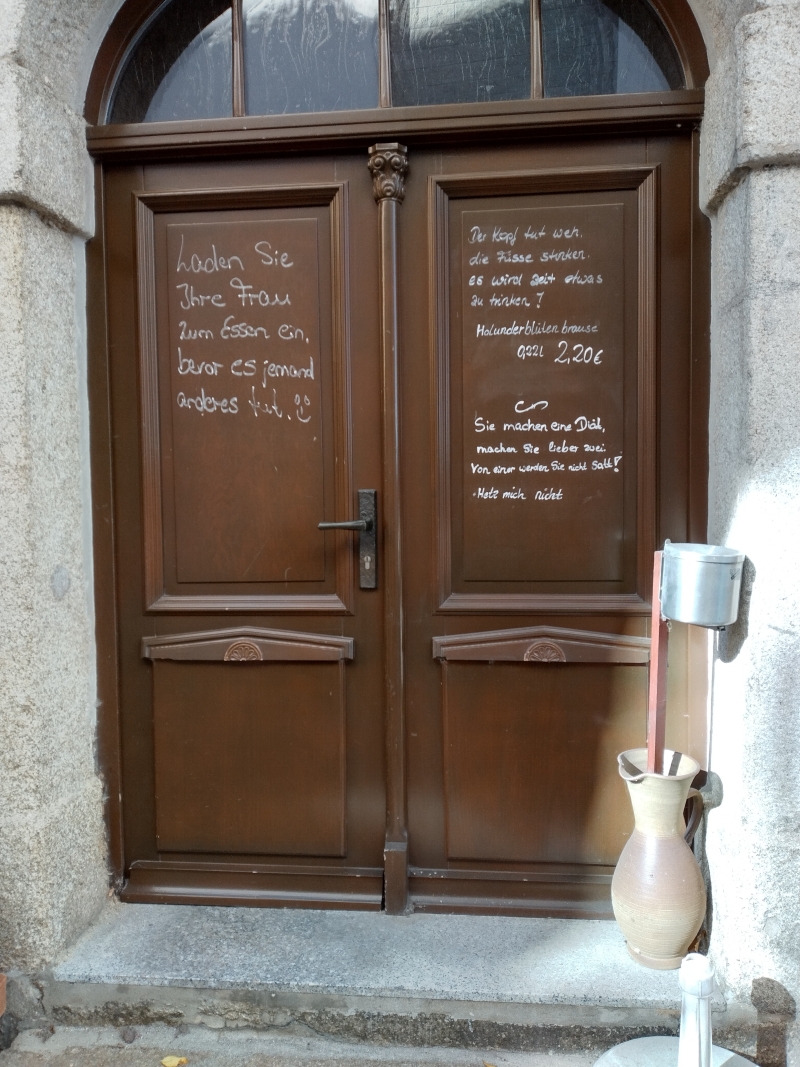 Laden Sie
Ihre Frau
zum Essen ein,
bevor es jemand
anderes tut.
Der Kopf tut weh,
die Füsse stinken.
es wird Zeit etwas
zu trinken!
Holunderblüten brause
0,22l 2,20€
Sie machen eine Diät,
machen Sie lieber zwei.
Von einer werden Sie nicht Satt!
Hetz mich nicht